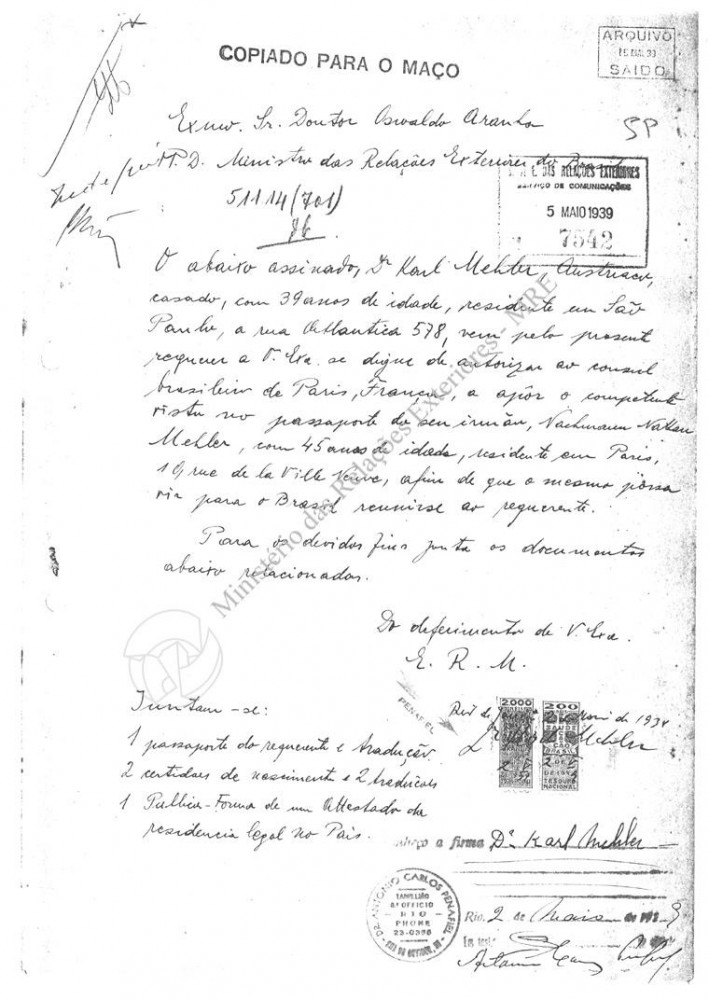 COPIADO PARA O MAÇO
ARQUIVO
SAIDO
SP
Exmo. Sr. Doutor Oswaldo Aranha
D. Ministro das Relações Exteriores do Brasil
51114(701)
E. DAS RELAÇÕES EXTERIORES
SERVIÇO DE COMUNICAÇÕES
5 MAIO 1939
7542
O abaixo assinado, Dr Karl Mehler, Austriaco,
casado, com 39 anos de idade, residente em São
Paulo, a rua Atlantica 578, vem pelo presente
requerer a V. Exa. se digne de autorizar ao consul
brasileiro de Paris, França, a apôr o competente
visto no passaporte de seu irmão, Nachmann Nathan
Mehler, com 45 anos de idade, residente em Paris,
rue de la Ville Neuve, afim de que o mesmo possa
vir para o Brasil reunirse ao requerente.
Para os devidos fins junta os documentos
abaixo relacionados.
Do deferimento de V. Exa.
E. R. M.
Ministério das Relações Exteriores - MRE
PENAFIEL
Juntam-se:
1 passaporte do requerente e tradução
2 certidões de nascimento e 2 traducões
1 Publica-Forma de um Attestado de
residencia legal no Pais.
Rio de
de 193
Mehler
2000
200
SAUDE
BRASIL
TESOURO
NACIONAL
a firma Dr. Karl Mehler
DR. ANTONIO CARLOS PENAFIEL
TABELLIÃO
8º OFFICIO
RIO
PHONE
23-0358
Rio, 2 de Maio de 193 9
Em test.